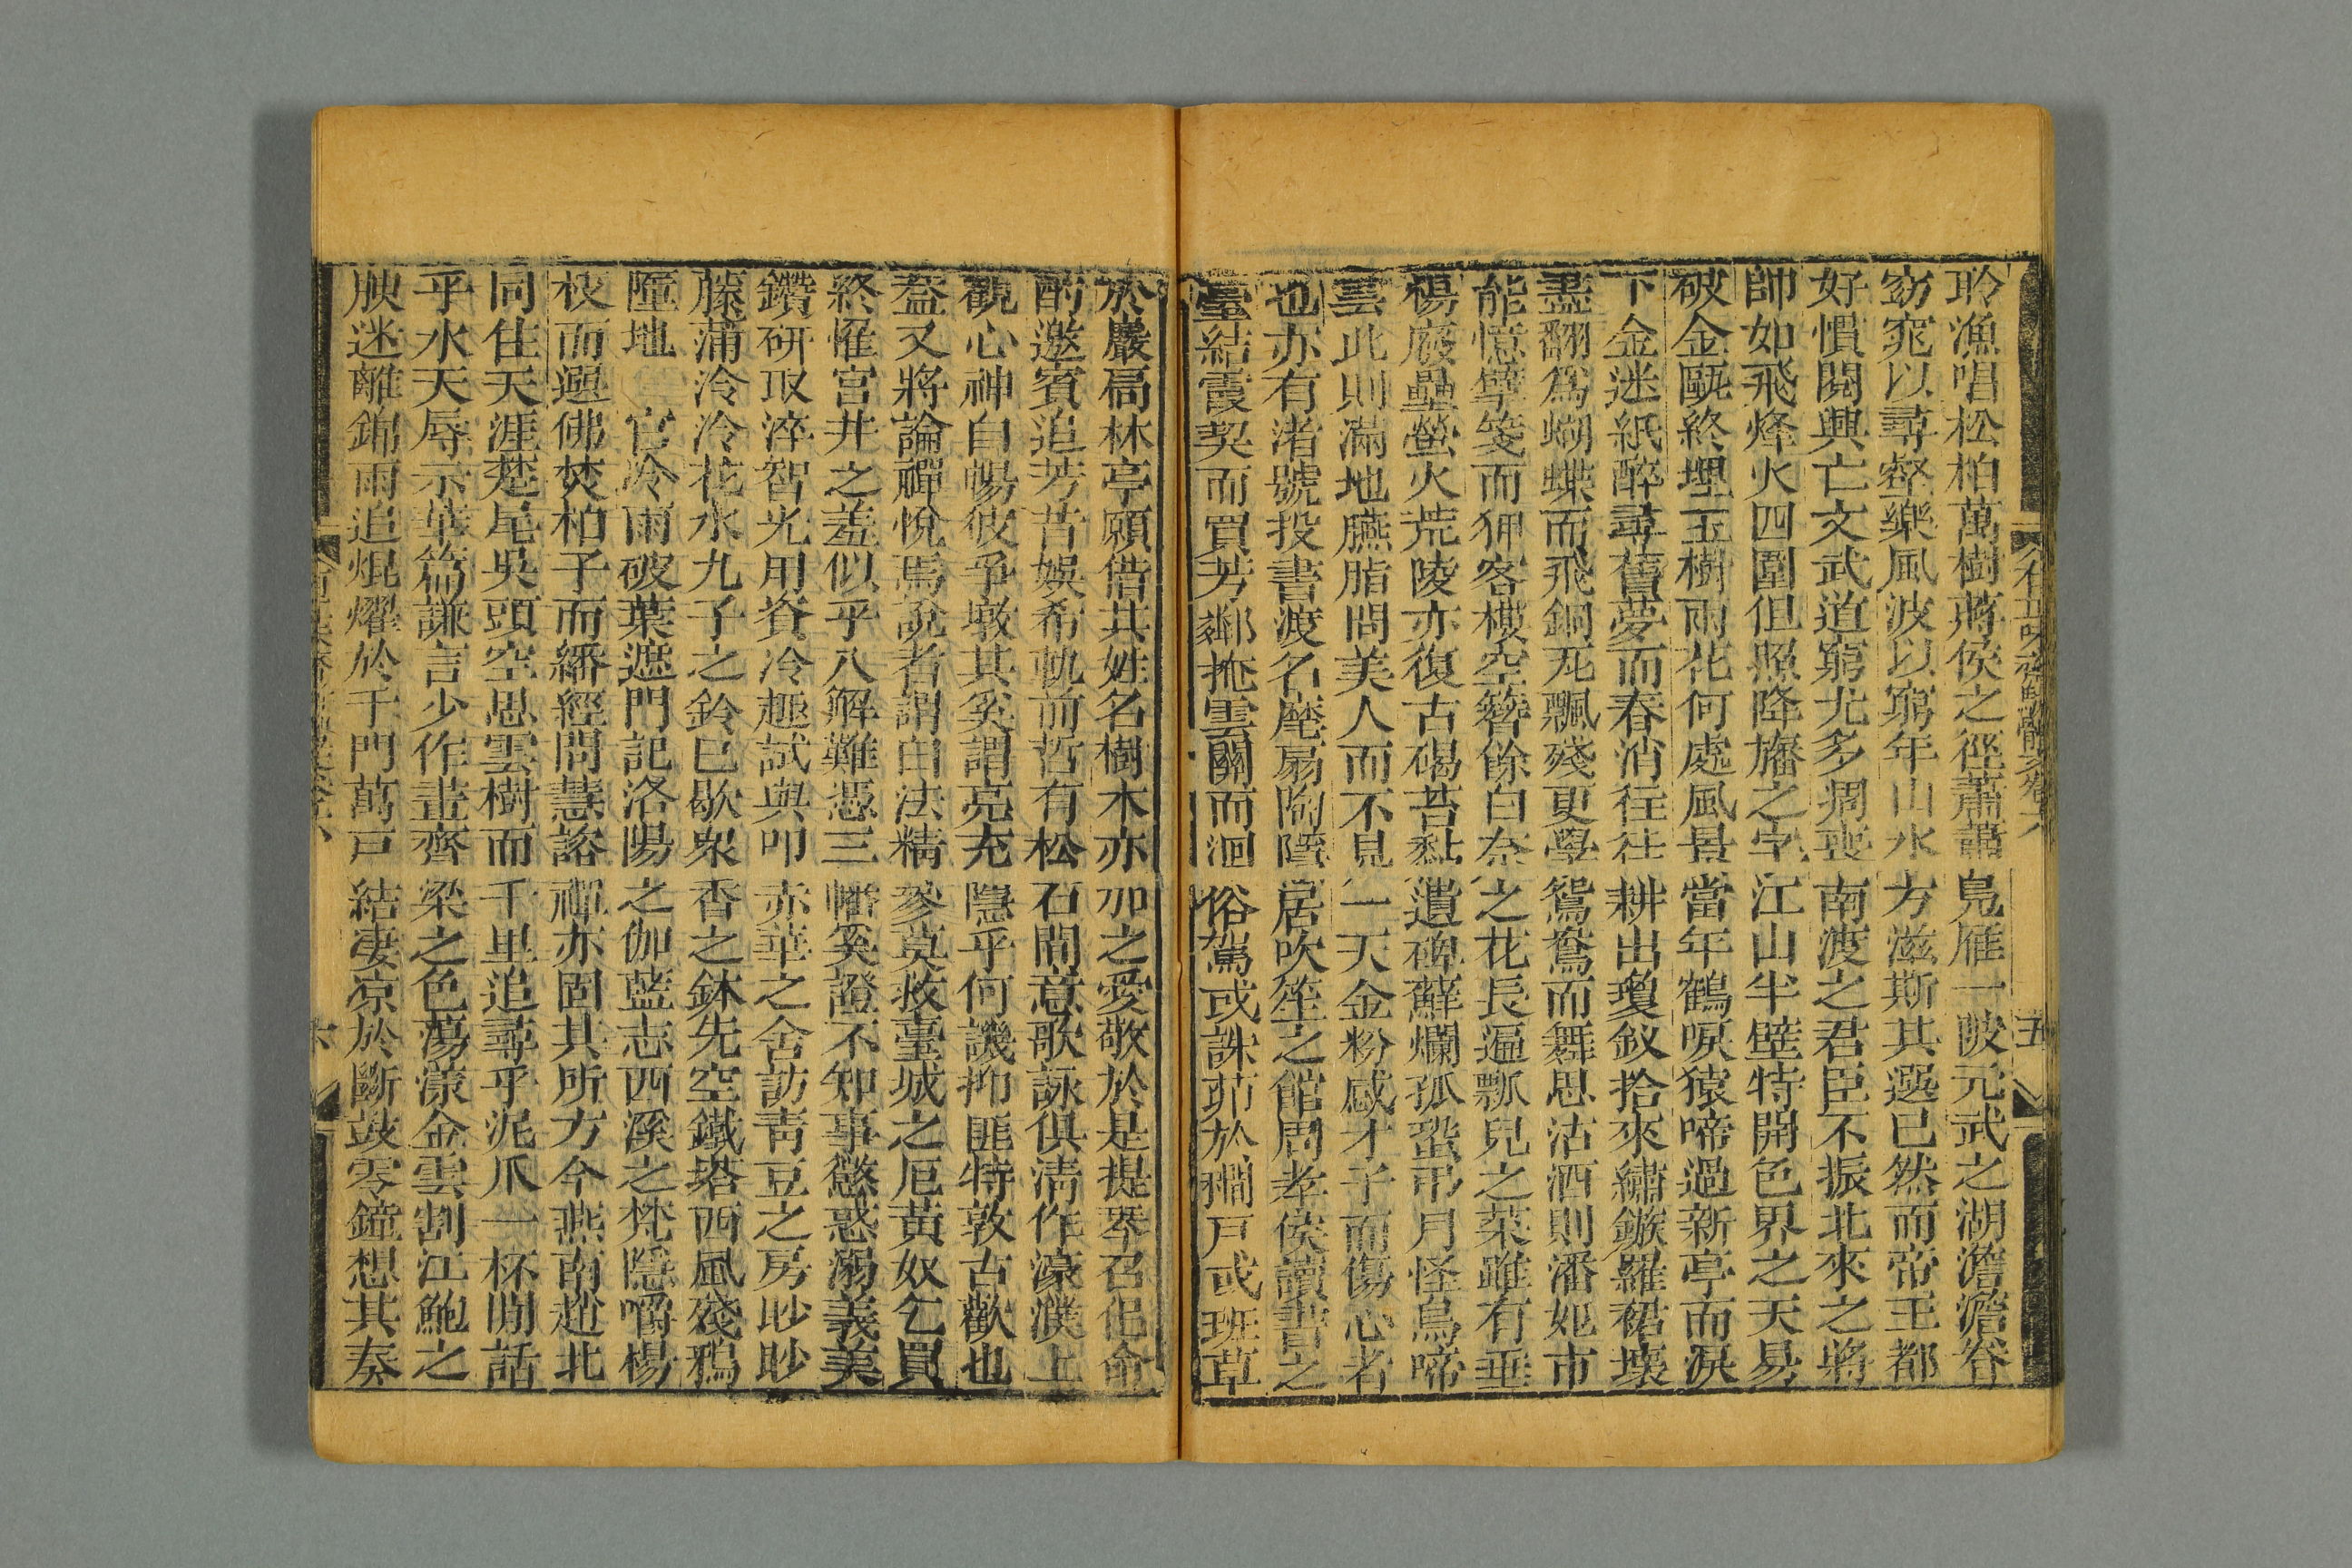 聆漁唱松柏萬樹蔣侯之徑蕭蕭鳧雁一陂元武之湖澹澹眷
窈窕以尋壑樂風波以窮年山水方滋斯其選已然而帝王都
好慣閱興亡文武道窮尤多凋喪南渡之君臣不振北來之將
帥如飛烽火四圍但照降旛之字江山半壁特開色界之天易
破金甌終埋玉樹雨花何處風景當年鶴唳猿啼過新亭而淚
下金迷紙醉尋舊夢而春消往往耕出瓊釵拾來繡鏃羅裙壞
盡翻爲蝴蝶而飛銅瓦飄殘更學鴛鴦而舞思沽酒則潘妃市
能憶擘箋而狎客樓空簪餘白奈之花長逼瓢兒之菜雖有垂
楊廢壘螢火荒陵亦復古碣苔黏遺碑蘚爛孤螿弔月怪鳥啼
曇此則滿地臙脂問美人而不見一天金粉感才子而傷心者
也亦有渚號投書渡名麾扇陶隱居吹笙之館周孝侯讀書之
臺結霞契而買芳鄰掩雲關而洄俗駕或誅茆於橺戶或班草
於巖扃林亭願借其姓名樹木亦加之愛敬於是提琴召侶命
酌邀賓追芳昔娛希軌前哲有松石間意歌詠俱淸作濠濮上
觀心神自暢彼爭墩其奚謂亮充隱乎何譏抑匪特敦古歡也
葢又將論禪悅焉說者謂白法精參莫救臺城之厄黃奴乞買
終罹宮井之羞似乎八解難憑三幡奚證不知事慾惑溺義美
鑽硏取淬智光用資冷趣試與叩赤華之舍訪靑豆之房眇眇
藤蒲泠泠花水九子之鈴已歇衆香之鉢先空鐵塔西風殘鴉
墮地官冷雨破葉遮門記洛陽之伽藍志西溪之梵隱嚼楊
枝而遡佛焚柏子而繙經問慧諮禪亦固其所方今燕南趙北
同住天涯楚尾吳頭空思雲樹而千里追尋乎泥爪一杯閒話
乎水天辱示華篇謙言少作畫齊梁之色蕩漾金雲割江鮑之
腴迷離錦雨追焜燿於千門萬戶結凄凉於斷鼓零鐘想其奏
五